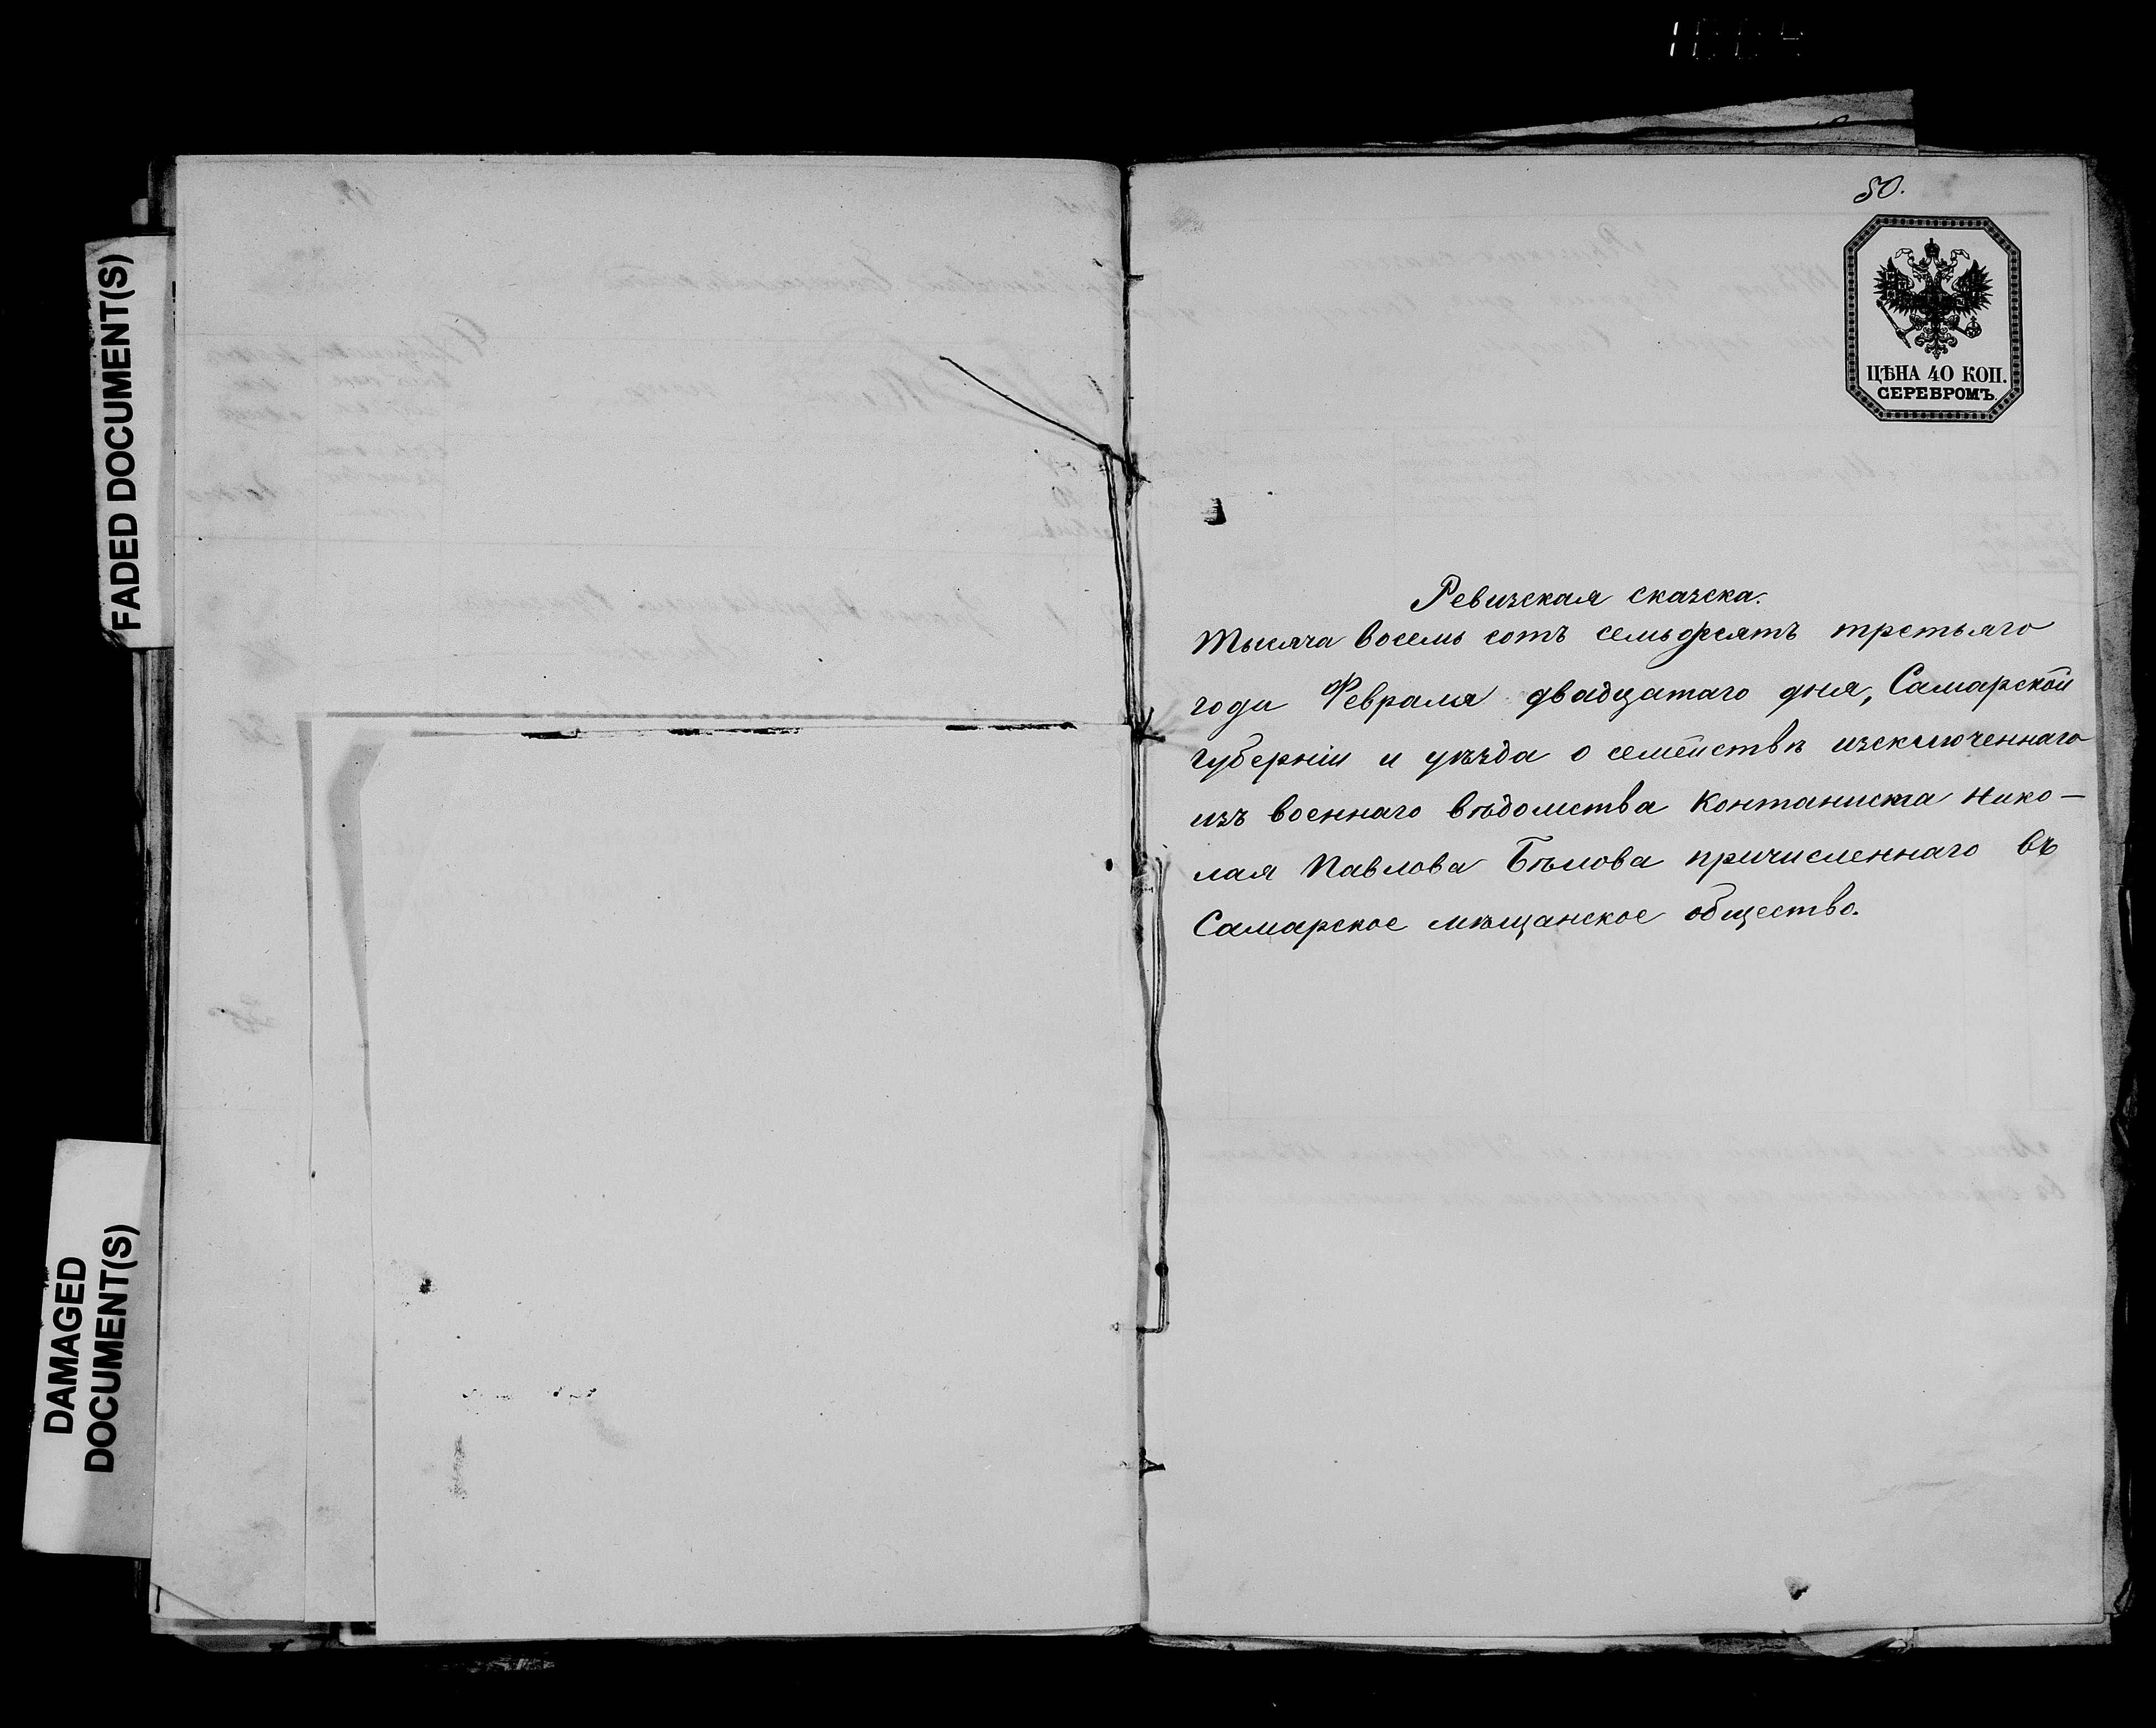 FADED DOCUMENT(S)
DAMAGED
DOCUMENT(S)
50.
ЦѢНА 40 КОП.
СЕРЕБРОМЪ.
Ревизская сказска.
Тысяча восемь сотъ семьдесятъ третьяго
года Февраля двадцатаго дня, Самарской
губернiи и уѣзда о семействѣ изсключеннаго
изъ военнаго вѣдомства Контаниста Нико-
лая Павлова Бѣлова причисленнаго въ
Самарское мѣщанское общество.